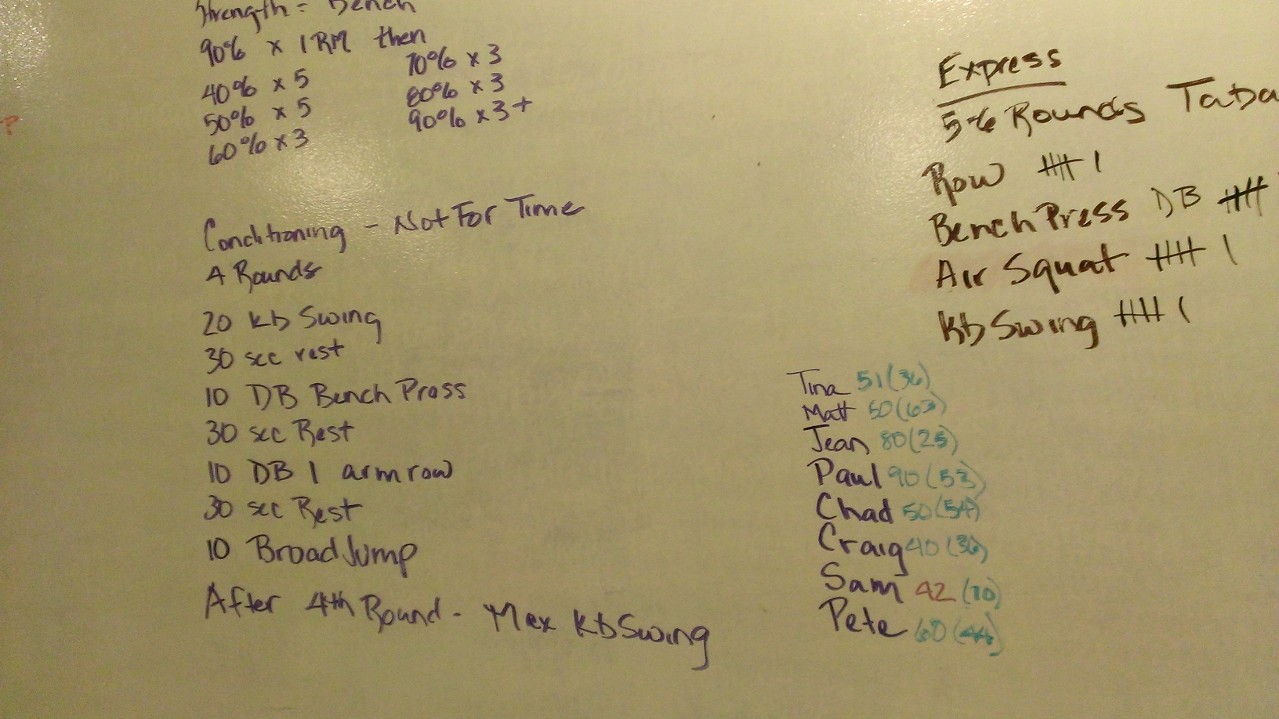 Strength = Bench
90% x 1RM then
40% x 5
50% x 5
60% x 3
70% x 3
80% x 3
90% x 3+
Conditioning - Not For Time
4 Rounds
20 kb Swing
30 sec rest
10 DB Bench Press
30 sec Rest
10 DB 1 arm row
30 sec Rest
10 Broad Jump
After 4th Round - Max Kb Swing
Express
5-6 Rounds Taba
Row 卌 1
Bench Press DB 卌
Air Squat 卌 1
Kb Swing 卌 1
Tina 51 (36)
Matt 50 (63)
Jean 80 (25)
Paul 90 (53)
Chad 50 (54)
Craig 40 (36)
Sam 42 (70)
Pete 60 (44)
?